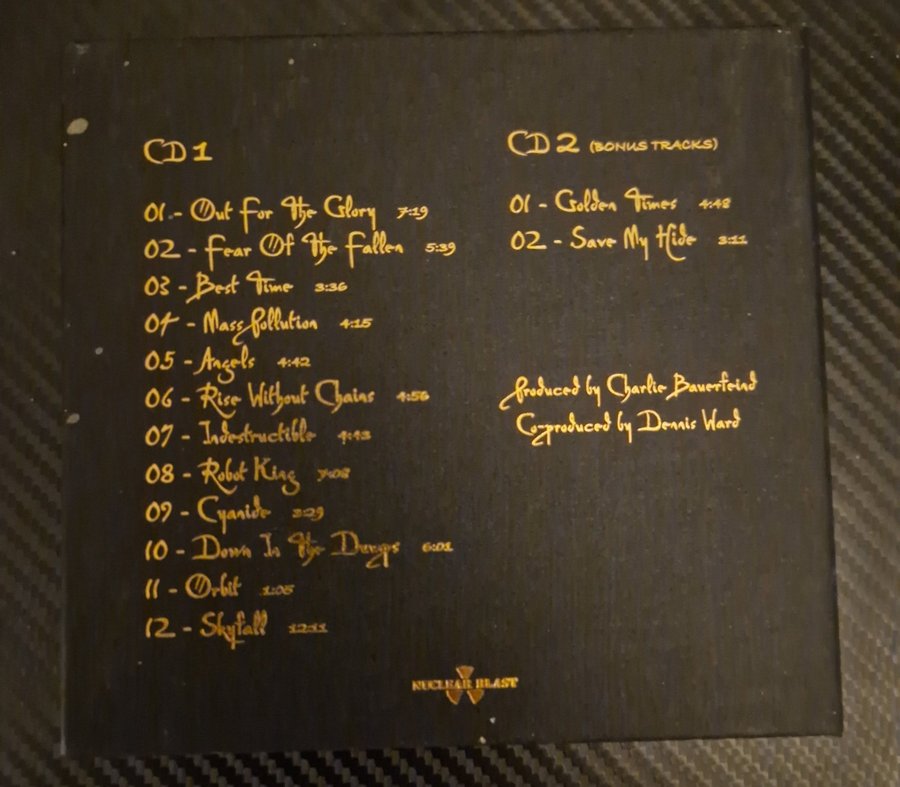 CD 1
01 - Out For The Glory 7:19
02 - Fear Of The Fallen 5:39
03 - Best Time 3:36
04 - Mass Pollution 4:15
05 - Angels 4:42
06 - Rise Without Chains 4:56
07 - Indestructible 4:43
08 - Robot King 7:08
09 - Cyanide 3:29
10 - Down In The Dumps 6:01
11 - Orbit 1:05
12 - Skyfall 12:11
CD 2 (BONUS TRACKS)
01 - Golden Times 4:48
02 - Save My Hide 3:11
Produced by Charlie Bauerfeind
Co-produced by Dennis Ward
NUCLEAR BLAST